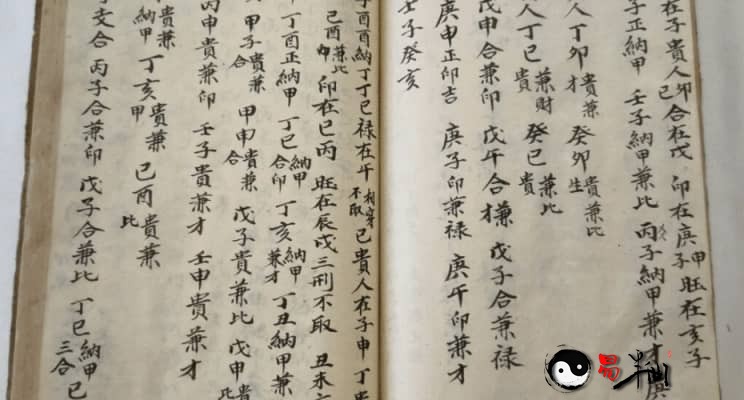 在子貴人卯巳合在戊 印在庚申子旺在亥子
子正納甲 壬子納甲兼比 丙子納甲兼才 庚
人丁卯才貴兼 癸卯生貴兼比
人丁巳貴兼財 癸巳貴兼比
戊申合兼印 戊午合兼 戊子合兼祿
庚申正印吉 庚子印兼祿 庚午印兼才
壬子癸亥
子酉酉納丁丁巳祿在午相穿不取 己貴人在子申 丁貴
己酉申兼比 印在巳丙 旺在辰戌三刑不取 丑未
丁酉正納甲 丁巳納甲合印 丁亥納甲兼才 丁丑納甲兼
甲子貴兼合 甲申貴兼合 戊子貴兼比 戊申貴兼比
丙申貴兼印 壬子貴兼才 壬申貴兼才
納甲 丁亥貴兼甲 己酉貴兼比
子支合 丙子合兼印 戊子合兼比 丁巳納甲三合 己
易